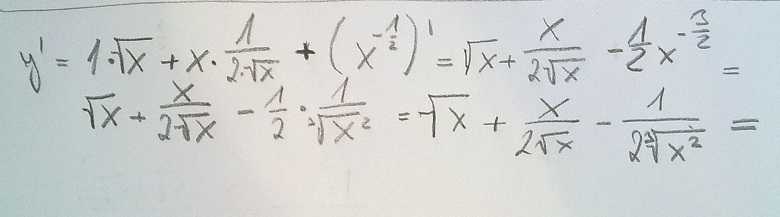 y' = 1·√x + x · 1/(2·√x) + (x^(-1/2))' = √x + x/(2√x) - 1/2 x^(-3/2) =
√x + x/(2√x) - 1/2 · 1/∛(x²) = √x + x/(2√x) - 1/(2∛(x²)) =